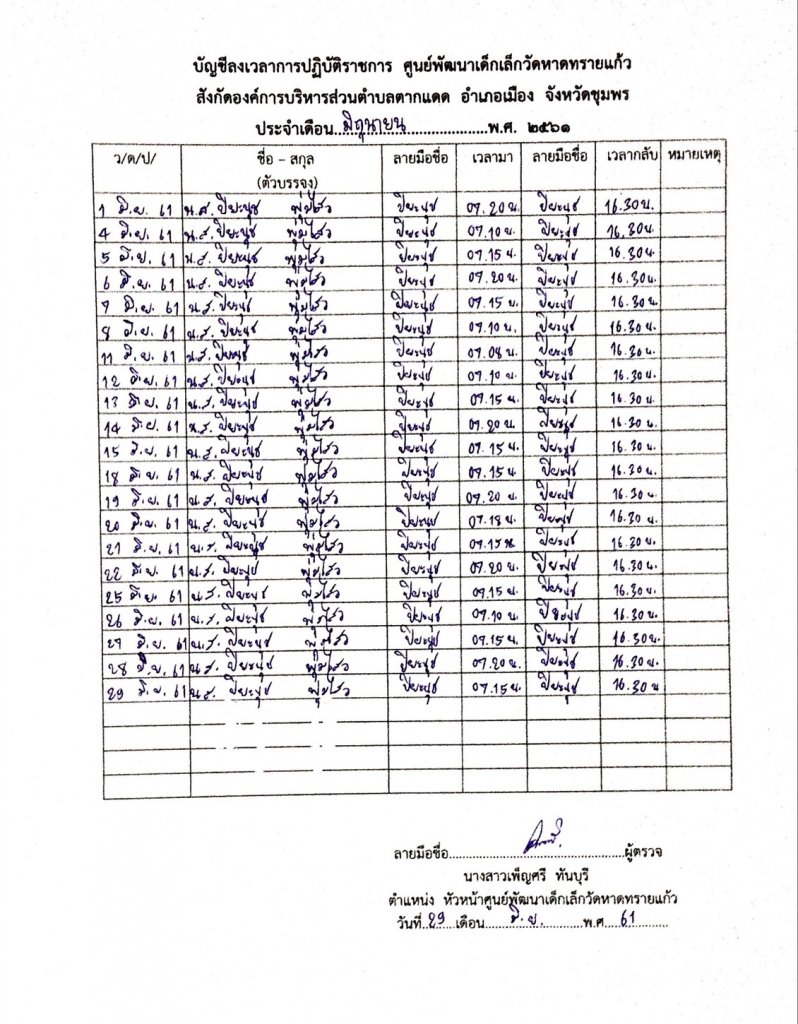 บัญชีลงเวลาการปฏิบัติราชการ ศูนย์พัฒนาเด็กเล็กวัดหาดทรายแก้ว
สังกัดองค์การบริหารส่วนตำบลตากแดด อำเภอเมือง จังหวัดชุมพร
ประจำเดือน มิถุนายน พ.ศ. ๒๕๖๑
ว/ด/ป/ ชื่อ - สกุล (ตัวบรรจง) ลายมือชื่อ เวลามา ลายมือชื่อ เวลากลับ หมายเหตุ
1 มิ.ย. 61 น.ส. ปิยะนุช พุ่มไสว ปิยะนุช 07.20 น. ปิยะนุช 16.30 น.
4 มิ.ย. 61 น.ส. ปิยะนุช พุ่มไสว ปิยะนุช 07.10 น. ปิยะนุช 16.30 น.
5 มิ.ย. 61 น.ส. ปิยะนุช พุ่มไสว ปิยะนุช 07.15 น. ปิยะนุช 16.30 น.
6 มิ.ย. 61 น.ส. ปิยะนุช พุ่มไสว ปิยะนุช 07.20 น. ปิยะนุช 16.30 น.
7 มิ.ย. 61 น.ส. ปิยะนุช พุ่มไสว ปิยะนุช 07.15 น. ปิยะนุช 16.30 น.
8 มิ.ย. 61 น.ส. ปิยะนุช พุ่มไสว ปิยะนุช 07.10 น. ปิยะนุช 16.30 น.
11 มิ.ย. 61 น.ส. ปิยะนุช พุ่มไสว ปิยะนุช 07.08 น. ปิยะนุช 16.30 น.
12 มิ.ย. 61 น.ส. ปิยะนุช พุ่มไสว ปิยะนุช 07.10 น. ปิยะนุช 16.30 น.
13 มิ.ย. 61 น.ส. ปิยะนุช พุ่มไสว ปิยะนุช 07.15 น. ปิยะนุช 16.30 น.
14 มิ.ย. 61 น.ส. ปิยะนุช พุ่มไสว ปิยะนุช 07.20 น. ปิยะนุช 16.30 น.
15 มิ.ย. 61 น.ส. ปิยะนุช พุ่มไสว ปิยะนุช 07.15 น. ปิยะนุช 16.30 น.
18 มิ.ย. 61 น.ส. ปิยะนุช พุ่มไสว ปิยะนุช 07.15 น. ปิยะนุช 16.30 น.
19 มิ.ย. 61 น.ส. ปิยะนุช พุ่มไสว ปิยะนุช 07.20 น. ปิยะนุช 16.30 น.
20 มิ.ย. 61 น.ส. ปิยะนุช พุ่มไสว ปิยะนุช 07.18 น. ปิยะนุช 16.30 น.
21 มิ.ย. 61 น.ส. ปิยะนุช พุ่มไสว ปิยะนุช 07.15 น ปิยะนุช 16.30 น.
22 มิ.ย. 61 น.ส. ปิยะนุช พุ่มไสว ปิยะนุช 07.20 น. ปิยะนุช 16.30 น.
25 มิ.ย. 61 น.ส. ปิยะนุช พุ่มไสว ปิยะนุช 07.15 น. ปิยะนุช 16.30 น.
26 มิ.ย. 61 น.ส. ปิยะนุช พุ่มไสว ปิยะนุช 07.10 น. ปิยะนุช 16.30 น.
27 มิ.ย. 61 น.ส. ปิยะนุช พุ่มไสว ปิยะนุช 07.15 น. ปิยะนุช 16.30 น.
28 มิ.ย. 61 น.ส. ปิยะนุช พุ่มไสว ปิยะนุช 07.20 น. ปิยะนุช 16.30 น.
29 มิ.ย. 61 น.ส. ปิยะนุช พุ่มไสว ปิยะนุช 07.15 น. ปิยะนุช 16.30 น
ลายมือชื่อ ผู้ตรวจ
นางสาวเพ็ญศรี ทันบุรี
ตำแหน่ง หัวหน้าศูนย์พัฒนาเด็กเล็กวัดหาดทรายแก้ว
วันที่ 29 เดือน มิ.ย. พ.ศ 61